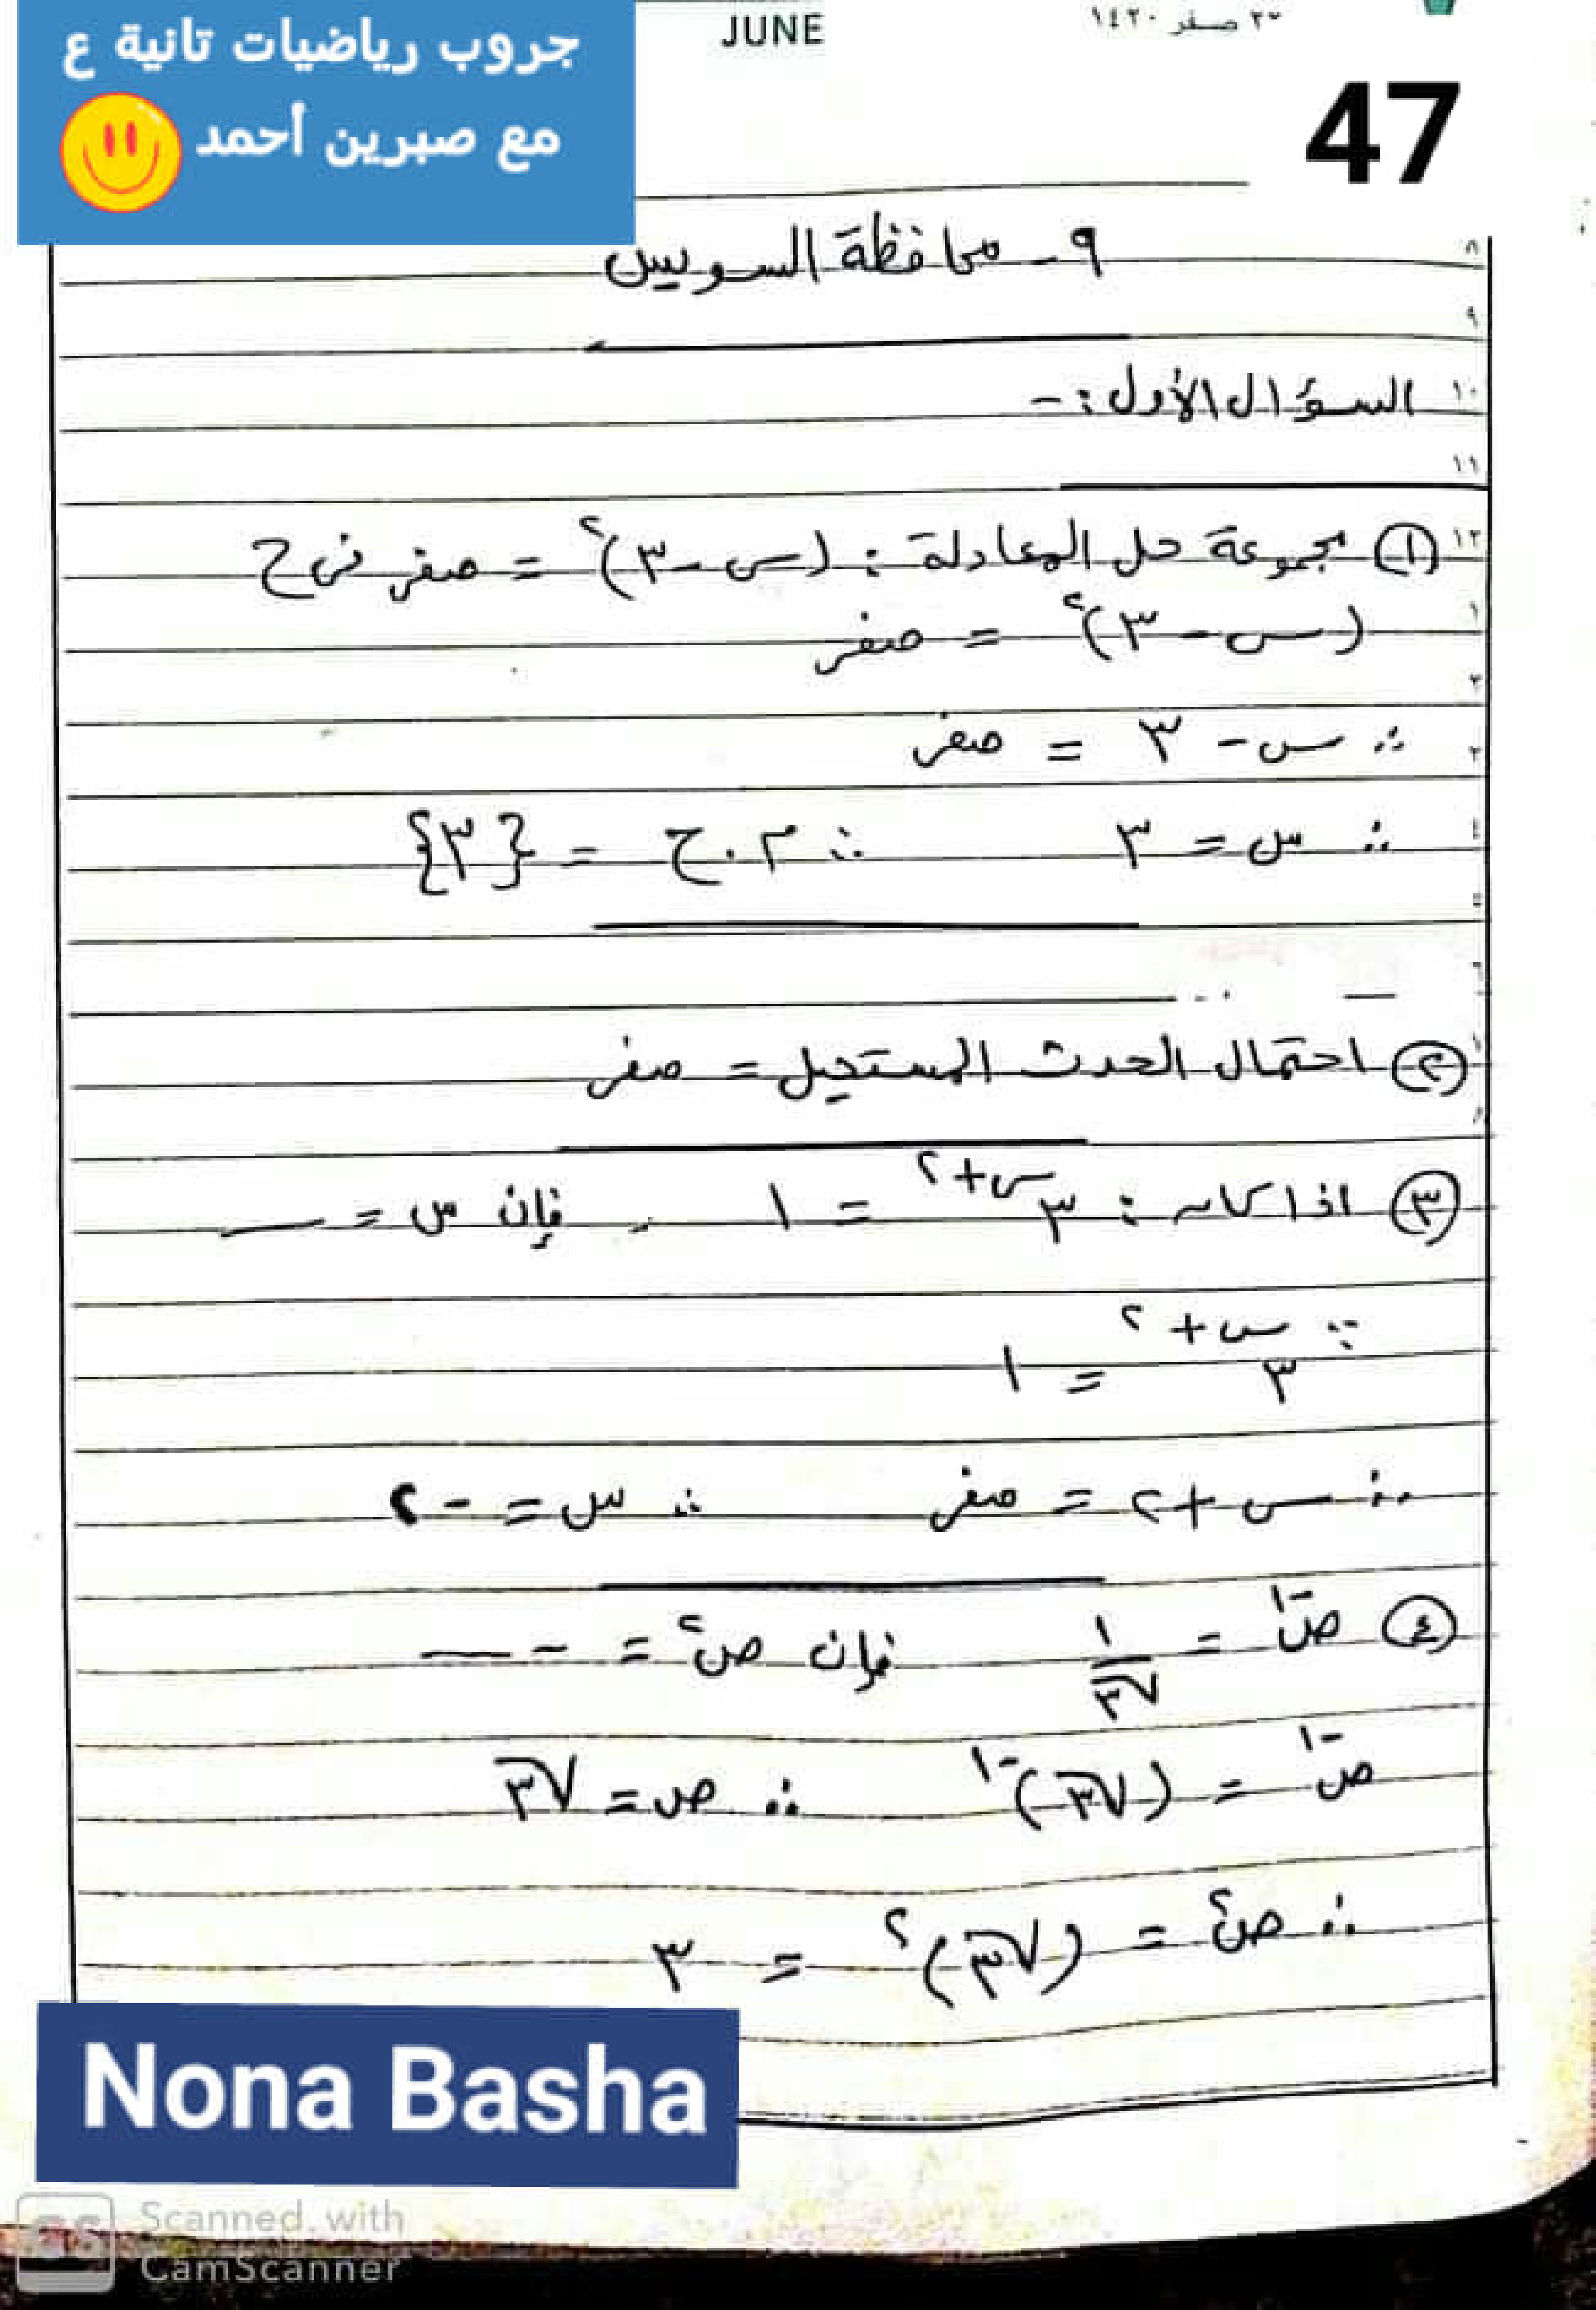 جروب رياضيات تانية ع
مع صبرين أحمد
JUNE
صفر ١٤٢٠
47
٩ - محافظة السويس
السؤال الأول : -
(١) مجموعة حل المعادلة : (س - ٣)^٢ = صفر في ح
(س - ٣)^٢ = صفر
∴ س - ٣ = صفر
∴ س = ٣ ∴ م . ح = {٣}
(٢) احتمال الحدث المستحيل = صفر
(٣) اذا كان : ٣^(س+٢) = ١ ، فإن س = ــــ
∵ ٣^(س+٢) = ١
∴ س + ٢ = صفر ∴ س = -٢
(٤) ص^-١ = ١/√٣ فإن ص^٢ = - ــــ
ص^-١ = (√٣)^-١ ∴ ص = √٣
∴ ص^٢ = (√٣)^٢ = ٣
Nona Basha
CS Scanned with
CamScanner